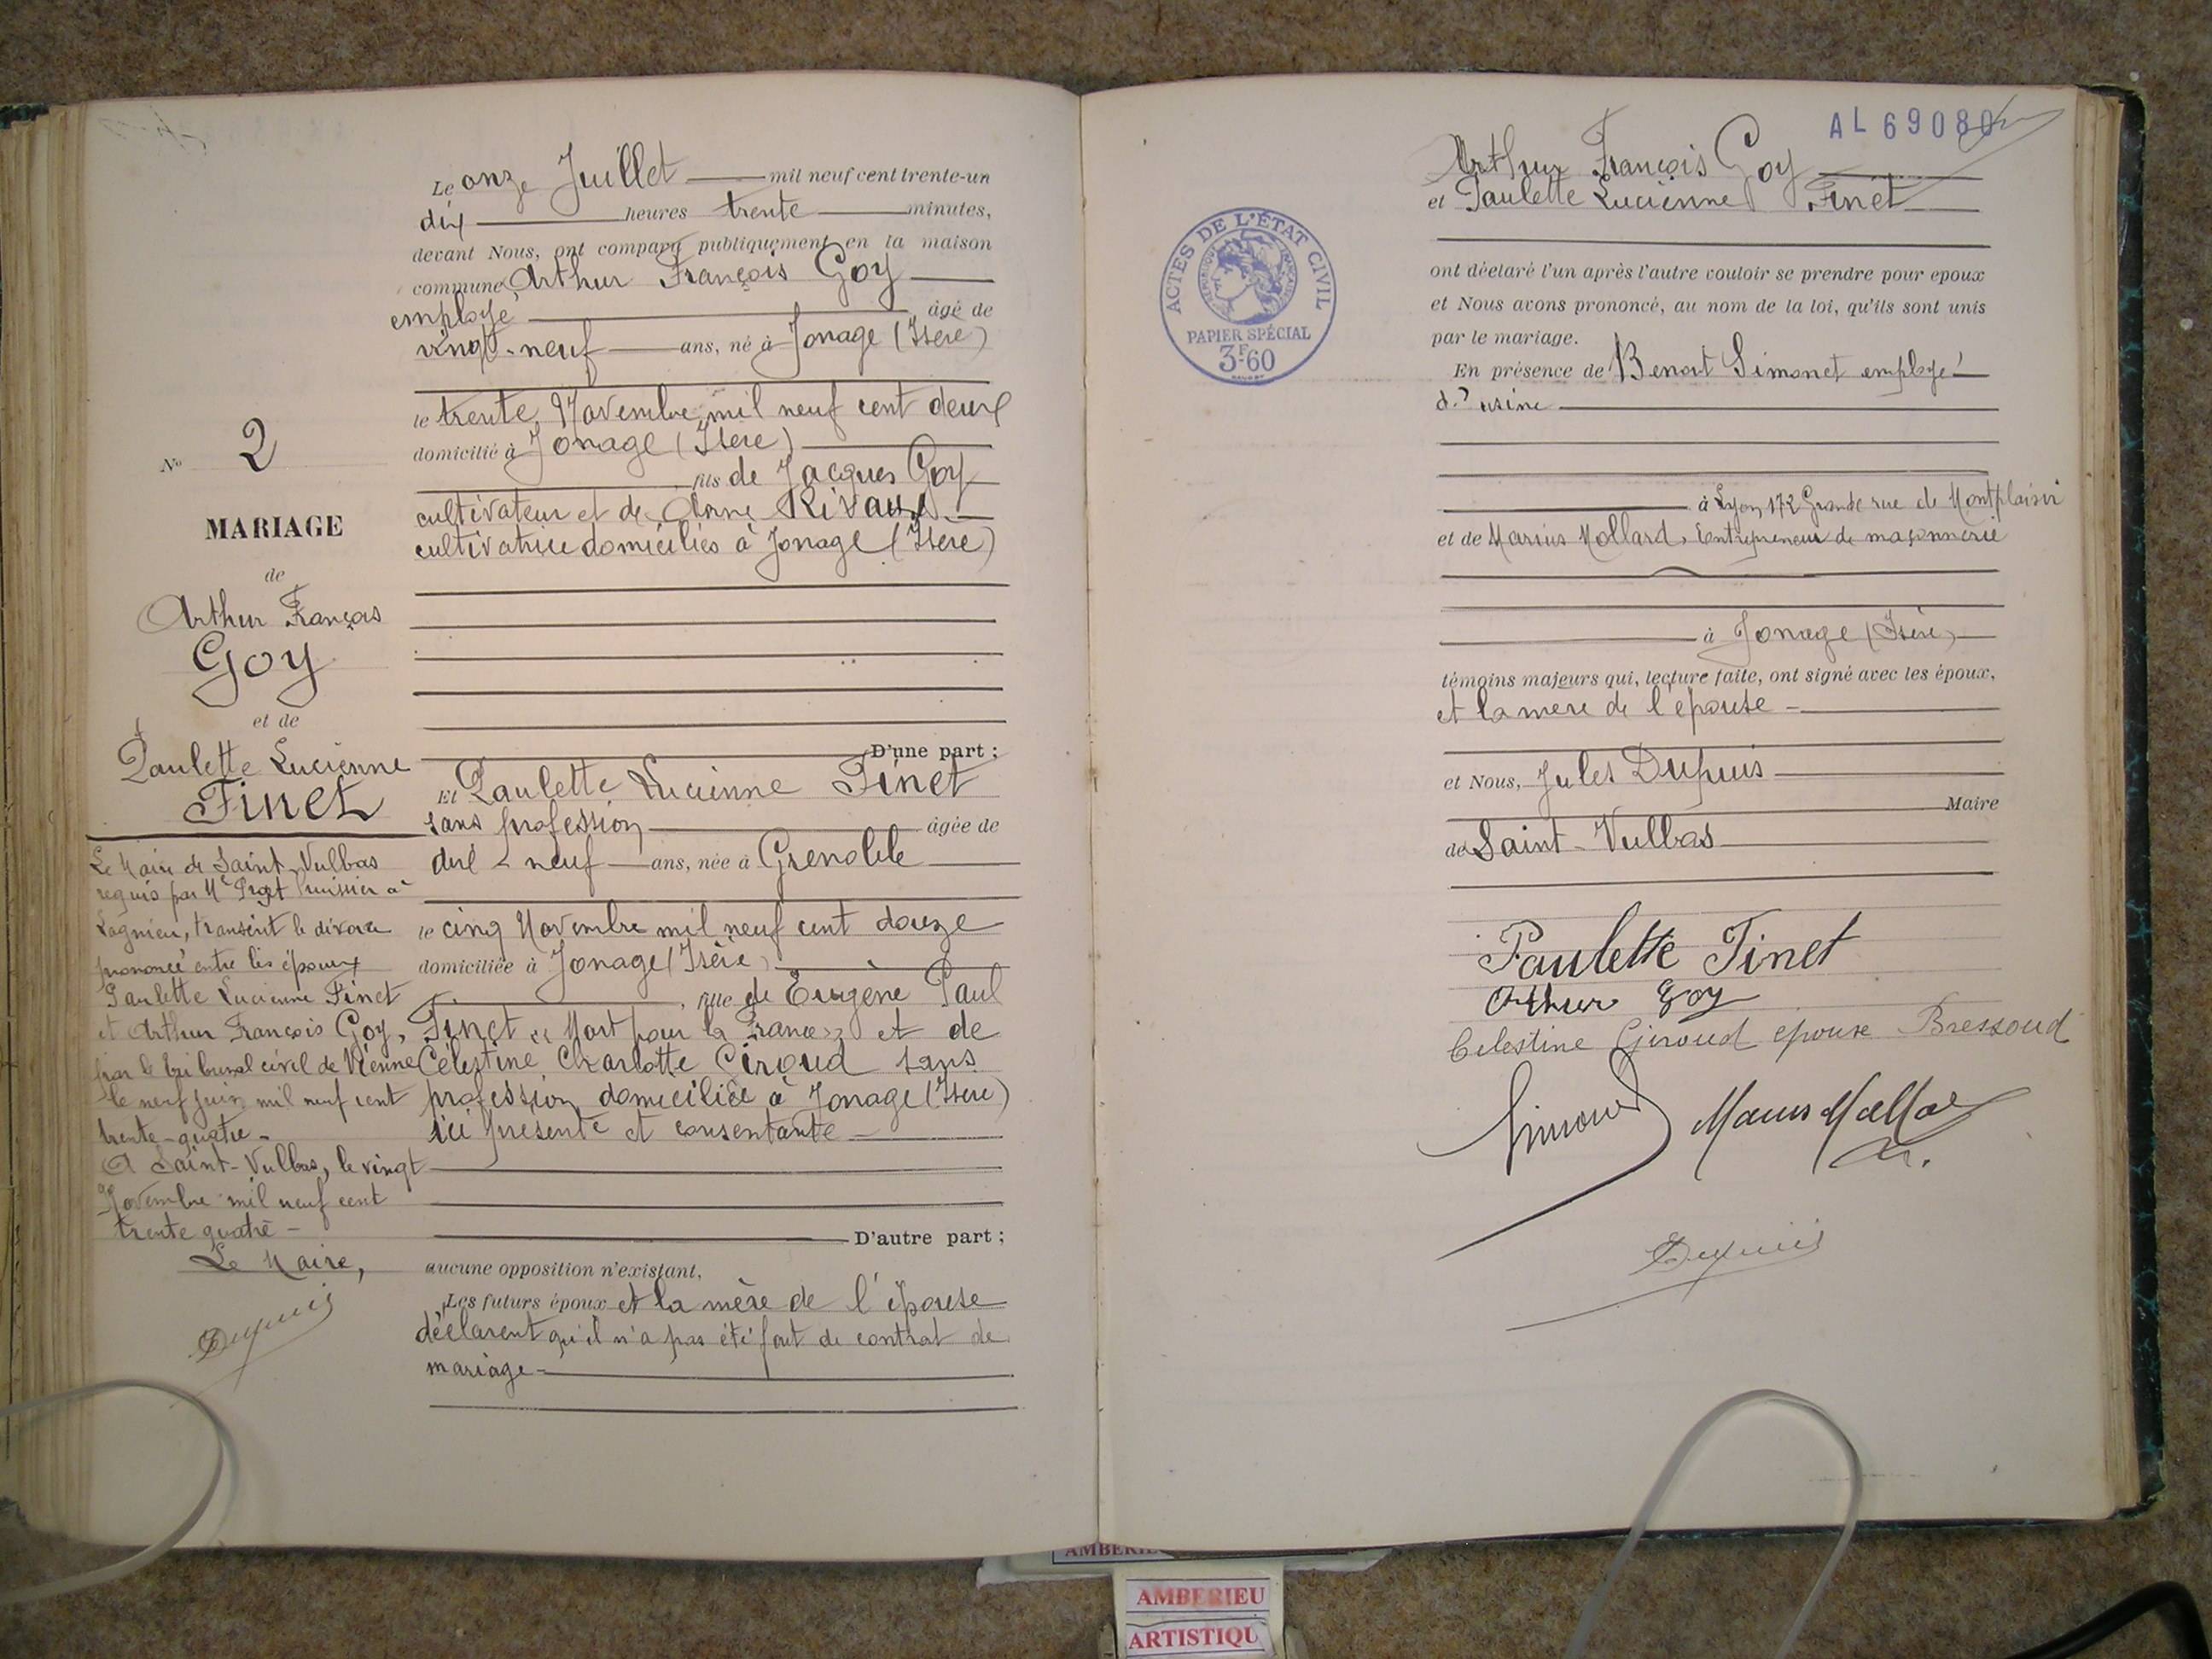 Le onze Juillet mil neuf cent trente-un
dix heures trente minutes,
devant Nous, ont comparu publiquement en la maison
commune Arthur François Goy
employé âgé de
vingt-neuf ans, né à Jonage (Isère)
le trente Novembre mil neuf cent deux
domicilié à Jonage (Isère)
fils de Jacques Goy
cultivateur et de Anne Rivaux
cultivatrice domiciliés à Jonage (Isère)
D'une part ;
Et Paulette Lucienne Finet
sans profession âgée de
dix-neuf ans, née à Grenoble
le cinq Novembre mil neuf cent douze
domiciliée à Jonage (Isère)
, fille de Eugène Paul
Finet "Mort pour la France" et de
Célestine Charlotte Giroud sans
profession domiciliée à Jonage (Isère)
ici présente et consentante
D'autre part ;
aucune opposition n'existant,
Les futurs époux et la mère de l'épouse
déclarent qu'il n'a pas été fait de contrat de
mariage
No 2
MARIAGE
de
Arthur François
Goy
et de
Paulette Lucienne
Finet
Le Maire de Saint-Vulbas
requis par Me huissier à
Lagnieu, transcrit le divorce
prononcé entre les époux
Paulette Lucienne Finet
et Arthur François Goy,
par le tribunal civil de Vienne
le neuf juin mil neuf cent
trente-quatre -
A Saint-Vulbas, le vingt
Novembre mil neuf cent
trente quatre -
Le Maire,
Dupuis
AL 69080
Arthur François Goy
et Paulette Lucienne Finet
ACTES DE L'ÉTAT CIVIL
RÉPUBLIQUE FRANÇAISE
PAPIER SPÉCIAL
3F60
ont déclaré l'un après l'autre vouloir se prendre pour epoux
et Nous avons prononcé, au nom de la loi, qu'ils sont unis
par le mariage.
En présence de Benoit Simonet employé
d'usine
à Lyon 172 Grande rue de Montplaisir
et de Marius Mollard, Entrepreneur de maçonnerie
à Jonage (Isère)
témoins majeurs qui, lecture faite, ont signé avec les époux,
et la mère de l'épouse -
et Nous, Jules Dupuis
Maire
de Saint-Vulbas
Paulette Finet
Arthur Goy
Celestine Giroud epouse Bressoud
Simonet Marius Mollard
Dupuis
AMBERIEU
ARTISTIQU